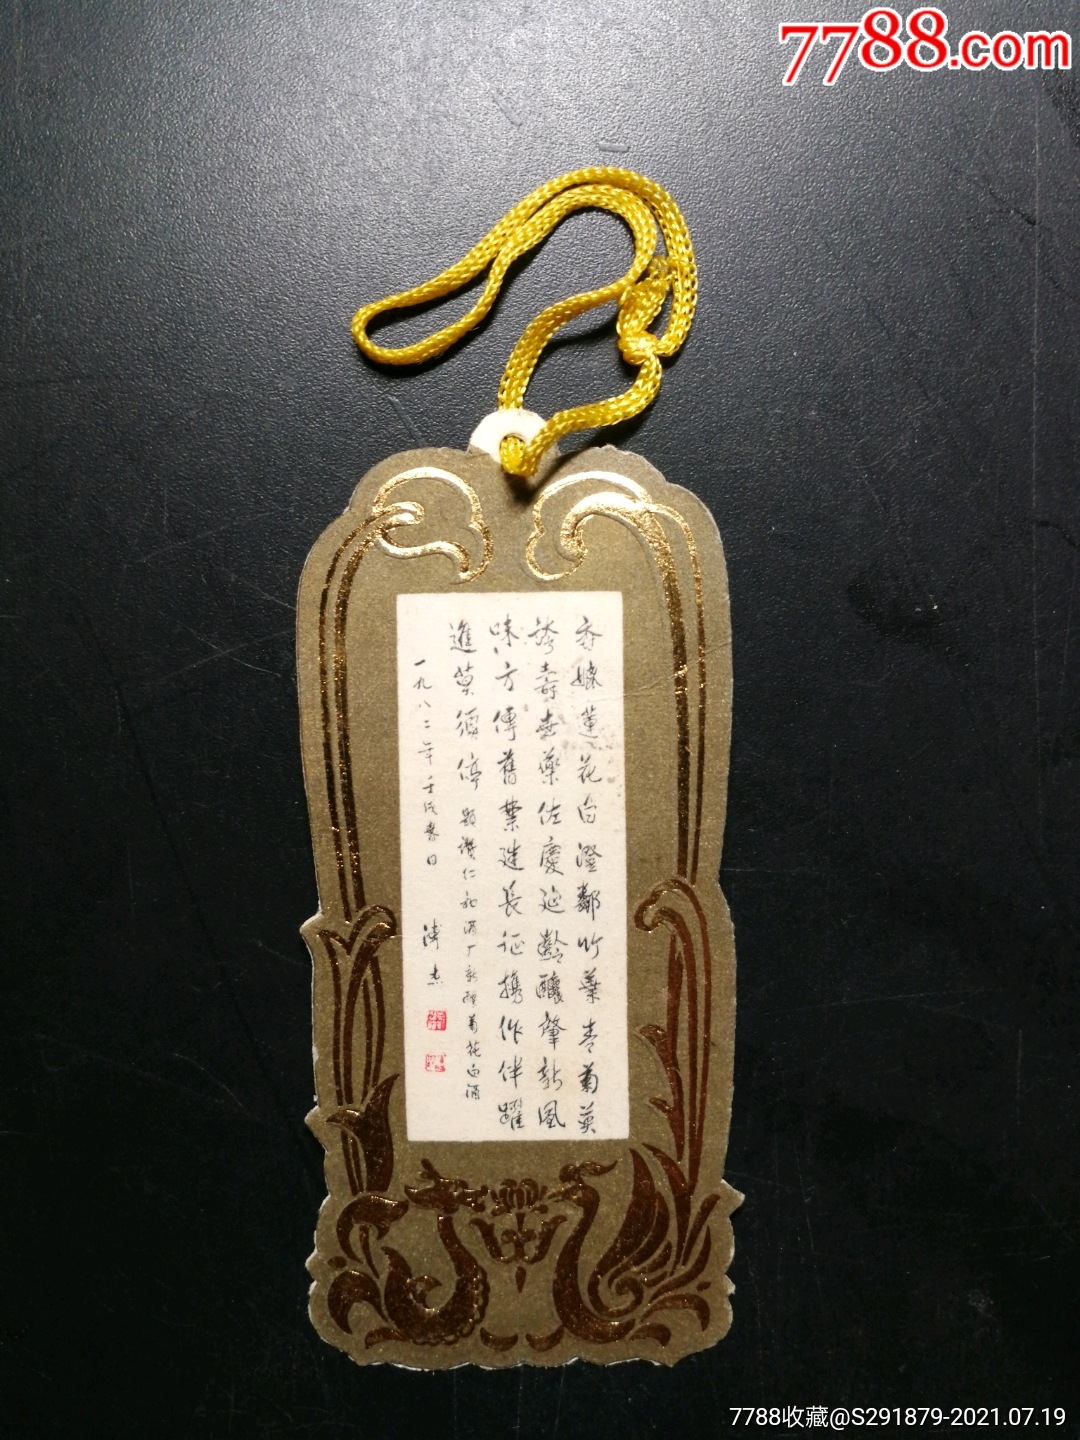 7788.com
香媲蓮花白澄鄰竹葉青菊英
誇壽世藥佐慶延齡釀肇新風
味方傳舊業進長征携作伴躍
進莫須停 題讚仁和酒厂新釀菊花白酒
一九八二年壬戌春日 溥杰
7788收藏@S291879-2021.07.19